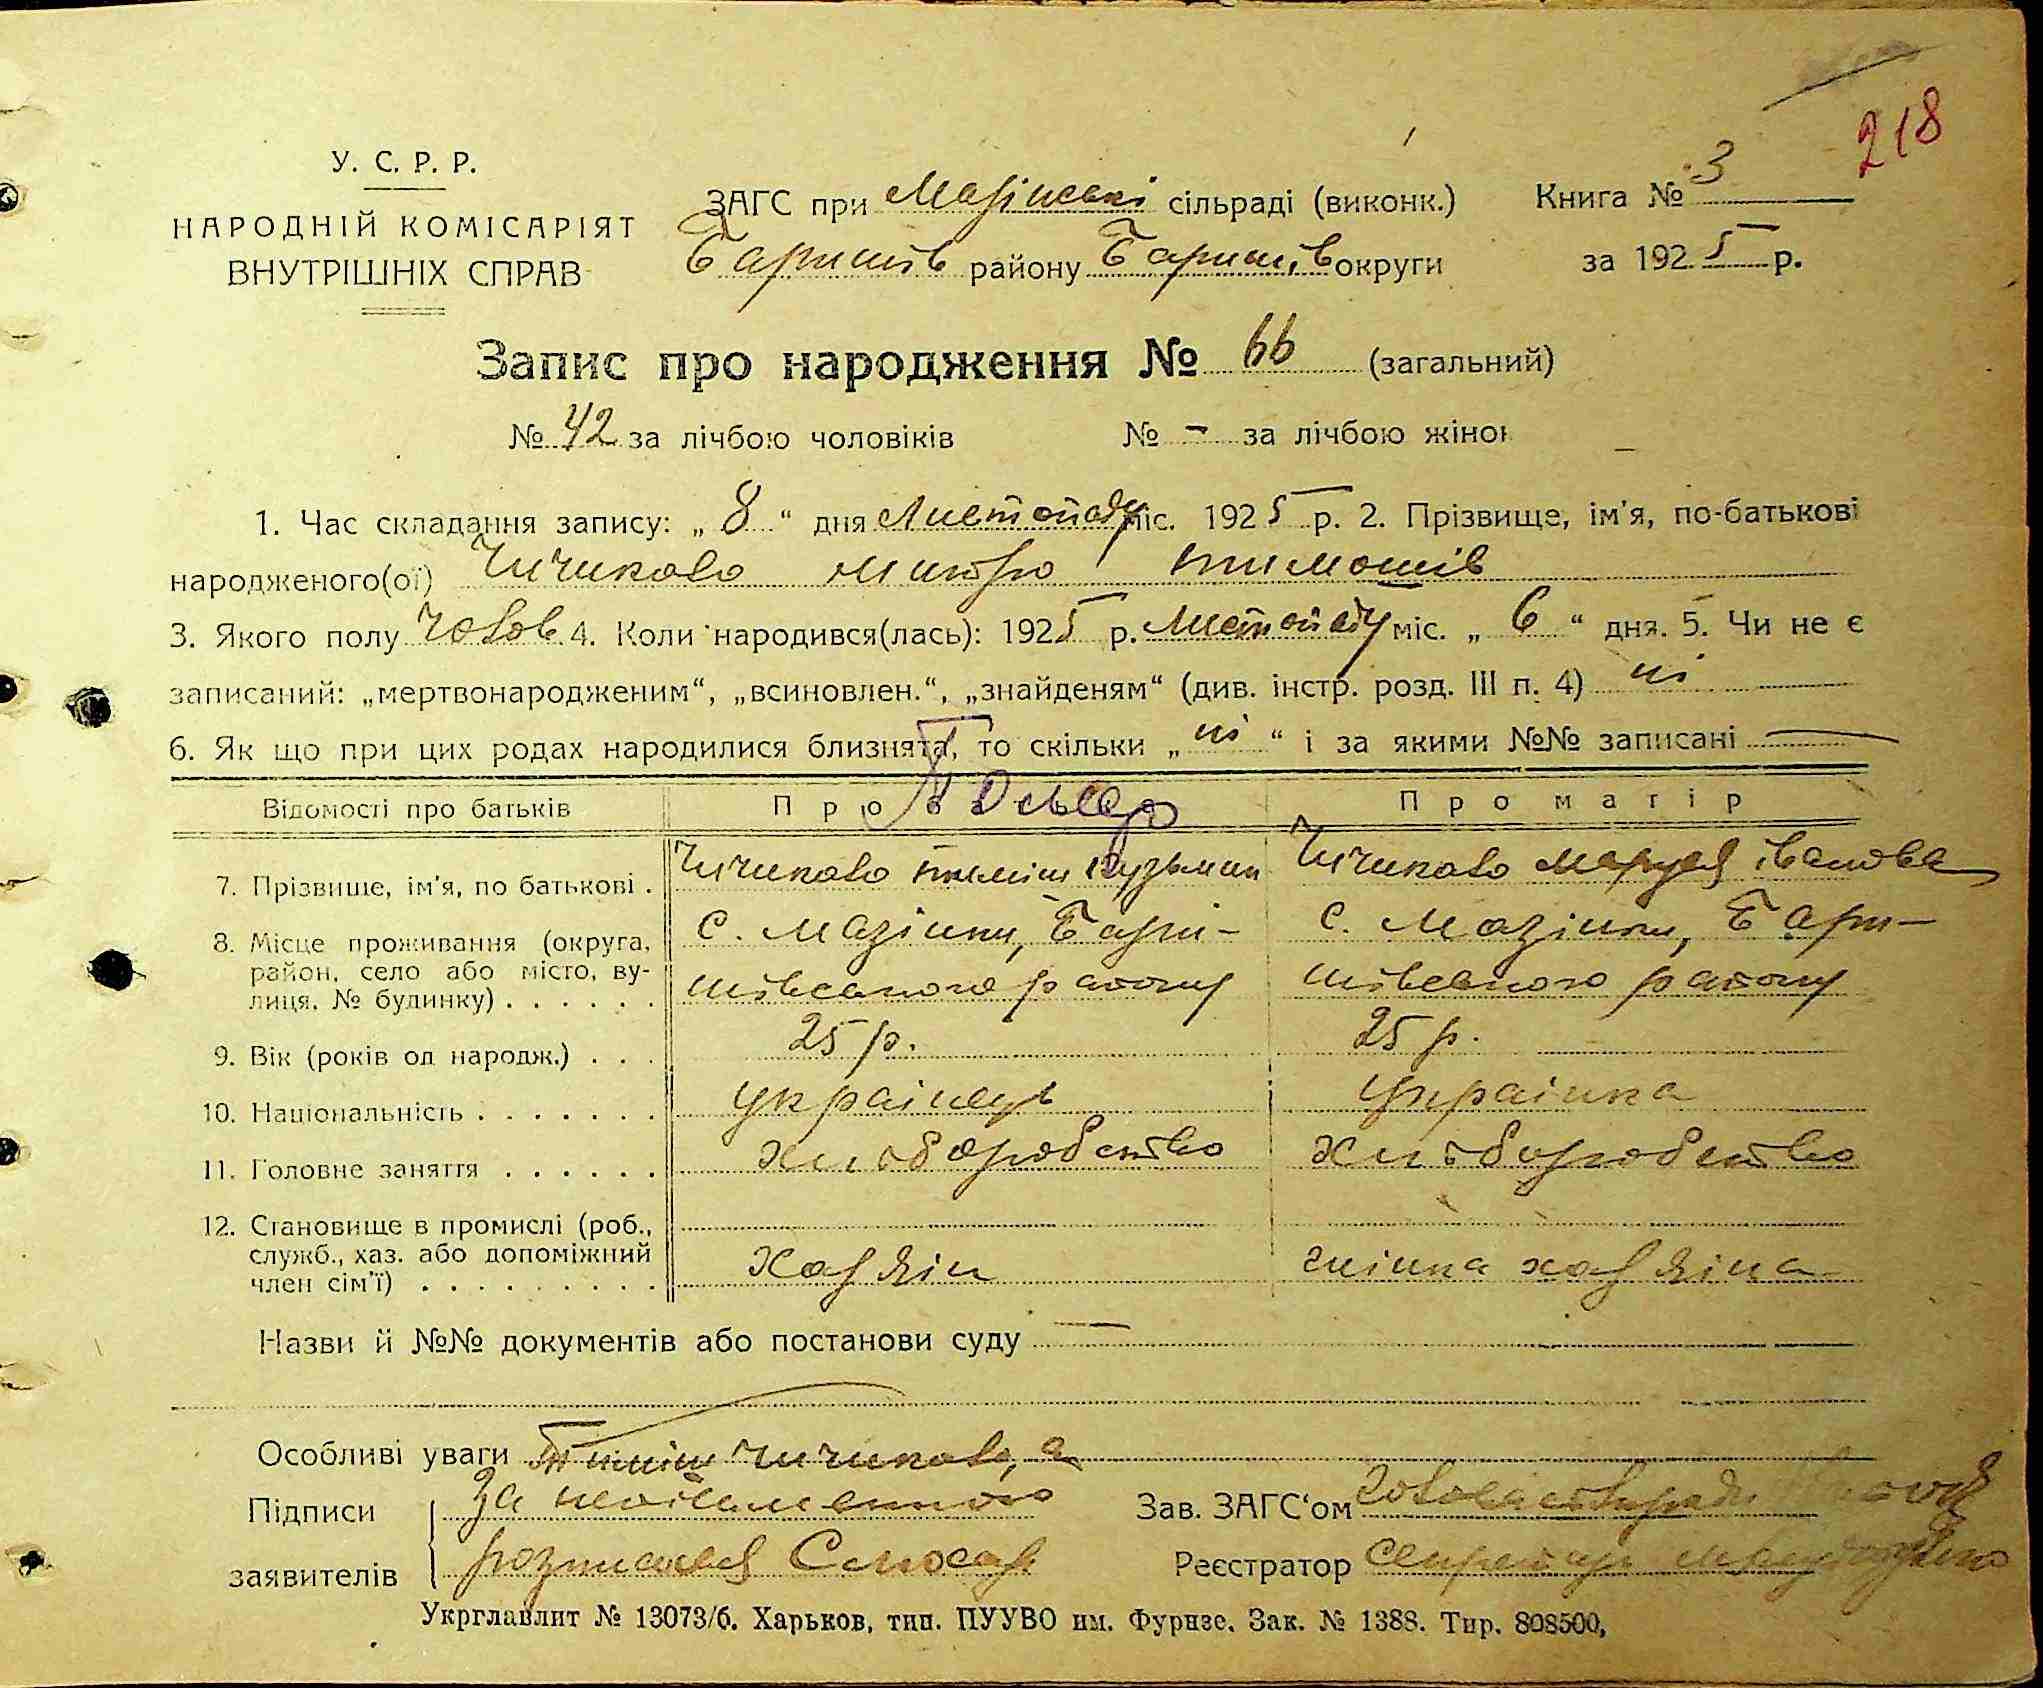 218
У. С. Р. Р.
НАРОДНІЙ КОМІСАРІЯТ
ВНУТРІШНІХ СПРАВ
ЗАГС при Мазінські сільраді (виконк.)
Баришів району Баришів округи
Книга № 3
за 1925 р.
Запис про народження № 66 (загальний)
№ 42 за лічбою чоловіків № - за лічбою жінок
1. Час складання запису: „ 8 “ дня Листопаду міс. 1925 р. 2. Прізвище, ім'я, по-батькові
народженого(ої) Чичикало Митро тимошів
3. Якого полу Чолов. 4. Коли народився(лась): 1925 р. Листопаду міс. „ 6 “ дня. 5. Чи не є
записаний: „мертвонародженим“, „всиновлен.“, „знайденям“ (див. інстр. розд. III п. 4) ні
6. Як що при цих родах народилися близнята, то скільки „ ні “ і за якими №№ записані —
Відомості про батьків Про батька Про матір
7. Прізвище, ім'я, по батькові . Чичикало тиміш Кузьмин Чичикало Маруся іванова
8. Місце проживання (округа, район, село або місто, вулиця, № будинку) . . . . . . с. Мазінки, Баришівського району с. Мазінки, Баришівського району
9. Вік (років од народж.) . . . 25 р. 25 р.
10. Національність . . . . . . . українець українка
11. Головне заняття . . . . . . хліборобство хліборобство
12. Становище в промислі (роб., служб., хаз. або допоміжний член сім'ї) . . . . . . . . . хазяін жінка хазяіна
Назви й №№ документів або постанови суду —
Особливі уваги Тиміш Чичикало, а
Підписи за неписьменного Зав. ЗАГС'ом голова сільради
заявителів розписався Слюсар Реєстратор секретар
Укрглавлит № 13073/б. Харьков, тип. ПУУВО им. Фрунзе. Зак. № 1388. Тир. 808500,